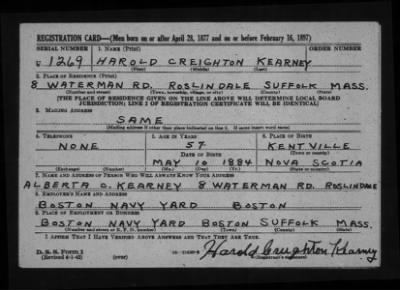 REGISTRATION CARD—(Men born on or after April 28, 1877 and on or before February 16, 1897)
SERIAL NUMBER 1. NAME (Print) ORDER NUMBER
U 1269 HAROLD CREIGHTON KEARNEY
(First) (Middle) (Last)
2. PLACE OF RESIDENCE (Print)
8 WATERMAN RD. ROSLINDALE SUFFOLK MASS.
(Number and street) (Town, township, village, or city) (County) (State)
[THE PLACE OF RESIDENCE GIVEN ON THE LINE ABOVE WILL DETERMINE LOCAL BOARD
JURISDICTION; LINE 2 OF REGISTRATION CERTIFICATE WILL BE IDENTICAL]
3. MAILING ADDRESS
SAME
[Mailing address if other than place indicated on line 2. If same insert word same]
4. TELEPHONE 5. AGE IN YEARS 6. PLACE OF BIRTH
NONE 57 KENTVILLE
DATE OF BIRTH (Town or county)
MAY 10 1884 NOVA SCOTIA
(Exchange) (Number) (Mo.) (Day) (Yr.) (State or country)
7. NAME AND ADDRESS OF PERSON WHO WILL ALWAYS KNOW YOUR ADDRESS
ALBERTA O. KEARNEY 8 WATERMAN RD. ROSLINDALE
8. EMPLOYER'S NAME AND ADDRESS
BOSTON NAVY YARD BOSTON
9. PLACE OF EMPLOYMENT OR BUSINESS
BOSTON NAVY YARD BOSTON SUFFOLK MASS.
(Number and street or R. F. D. number) (Town) (County) (State)
I AFFIRM THAT I HAVE VERIFIED ABOVE ANSWERS AND THAT THEY ARE TRUE.
D. S. S. Form 1
(Revised 4-1-42) (over) Harold Creighton Kearney
(Registrant's signature)